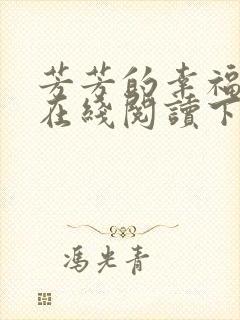 芳芳的幸福
在綫閱讀下
馮光青